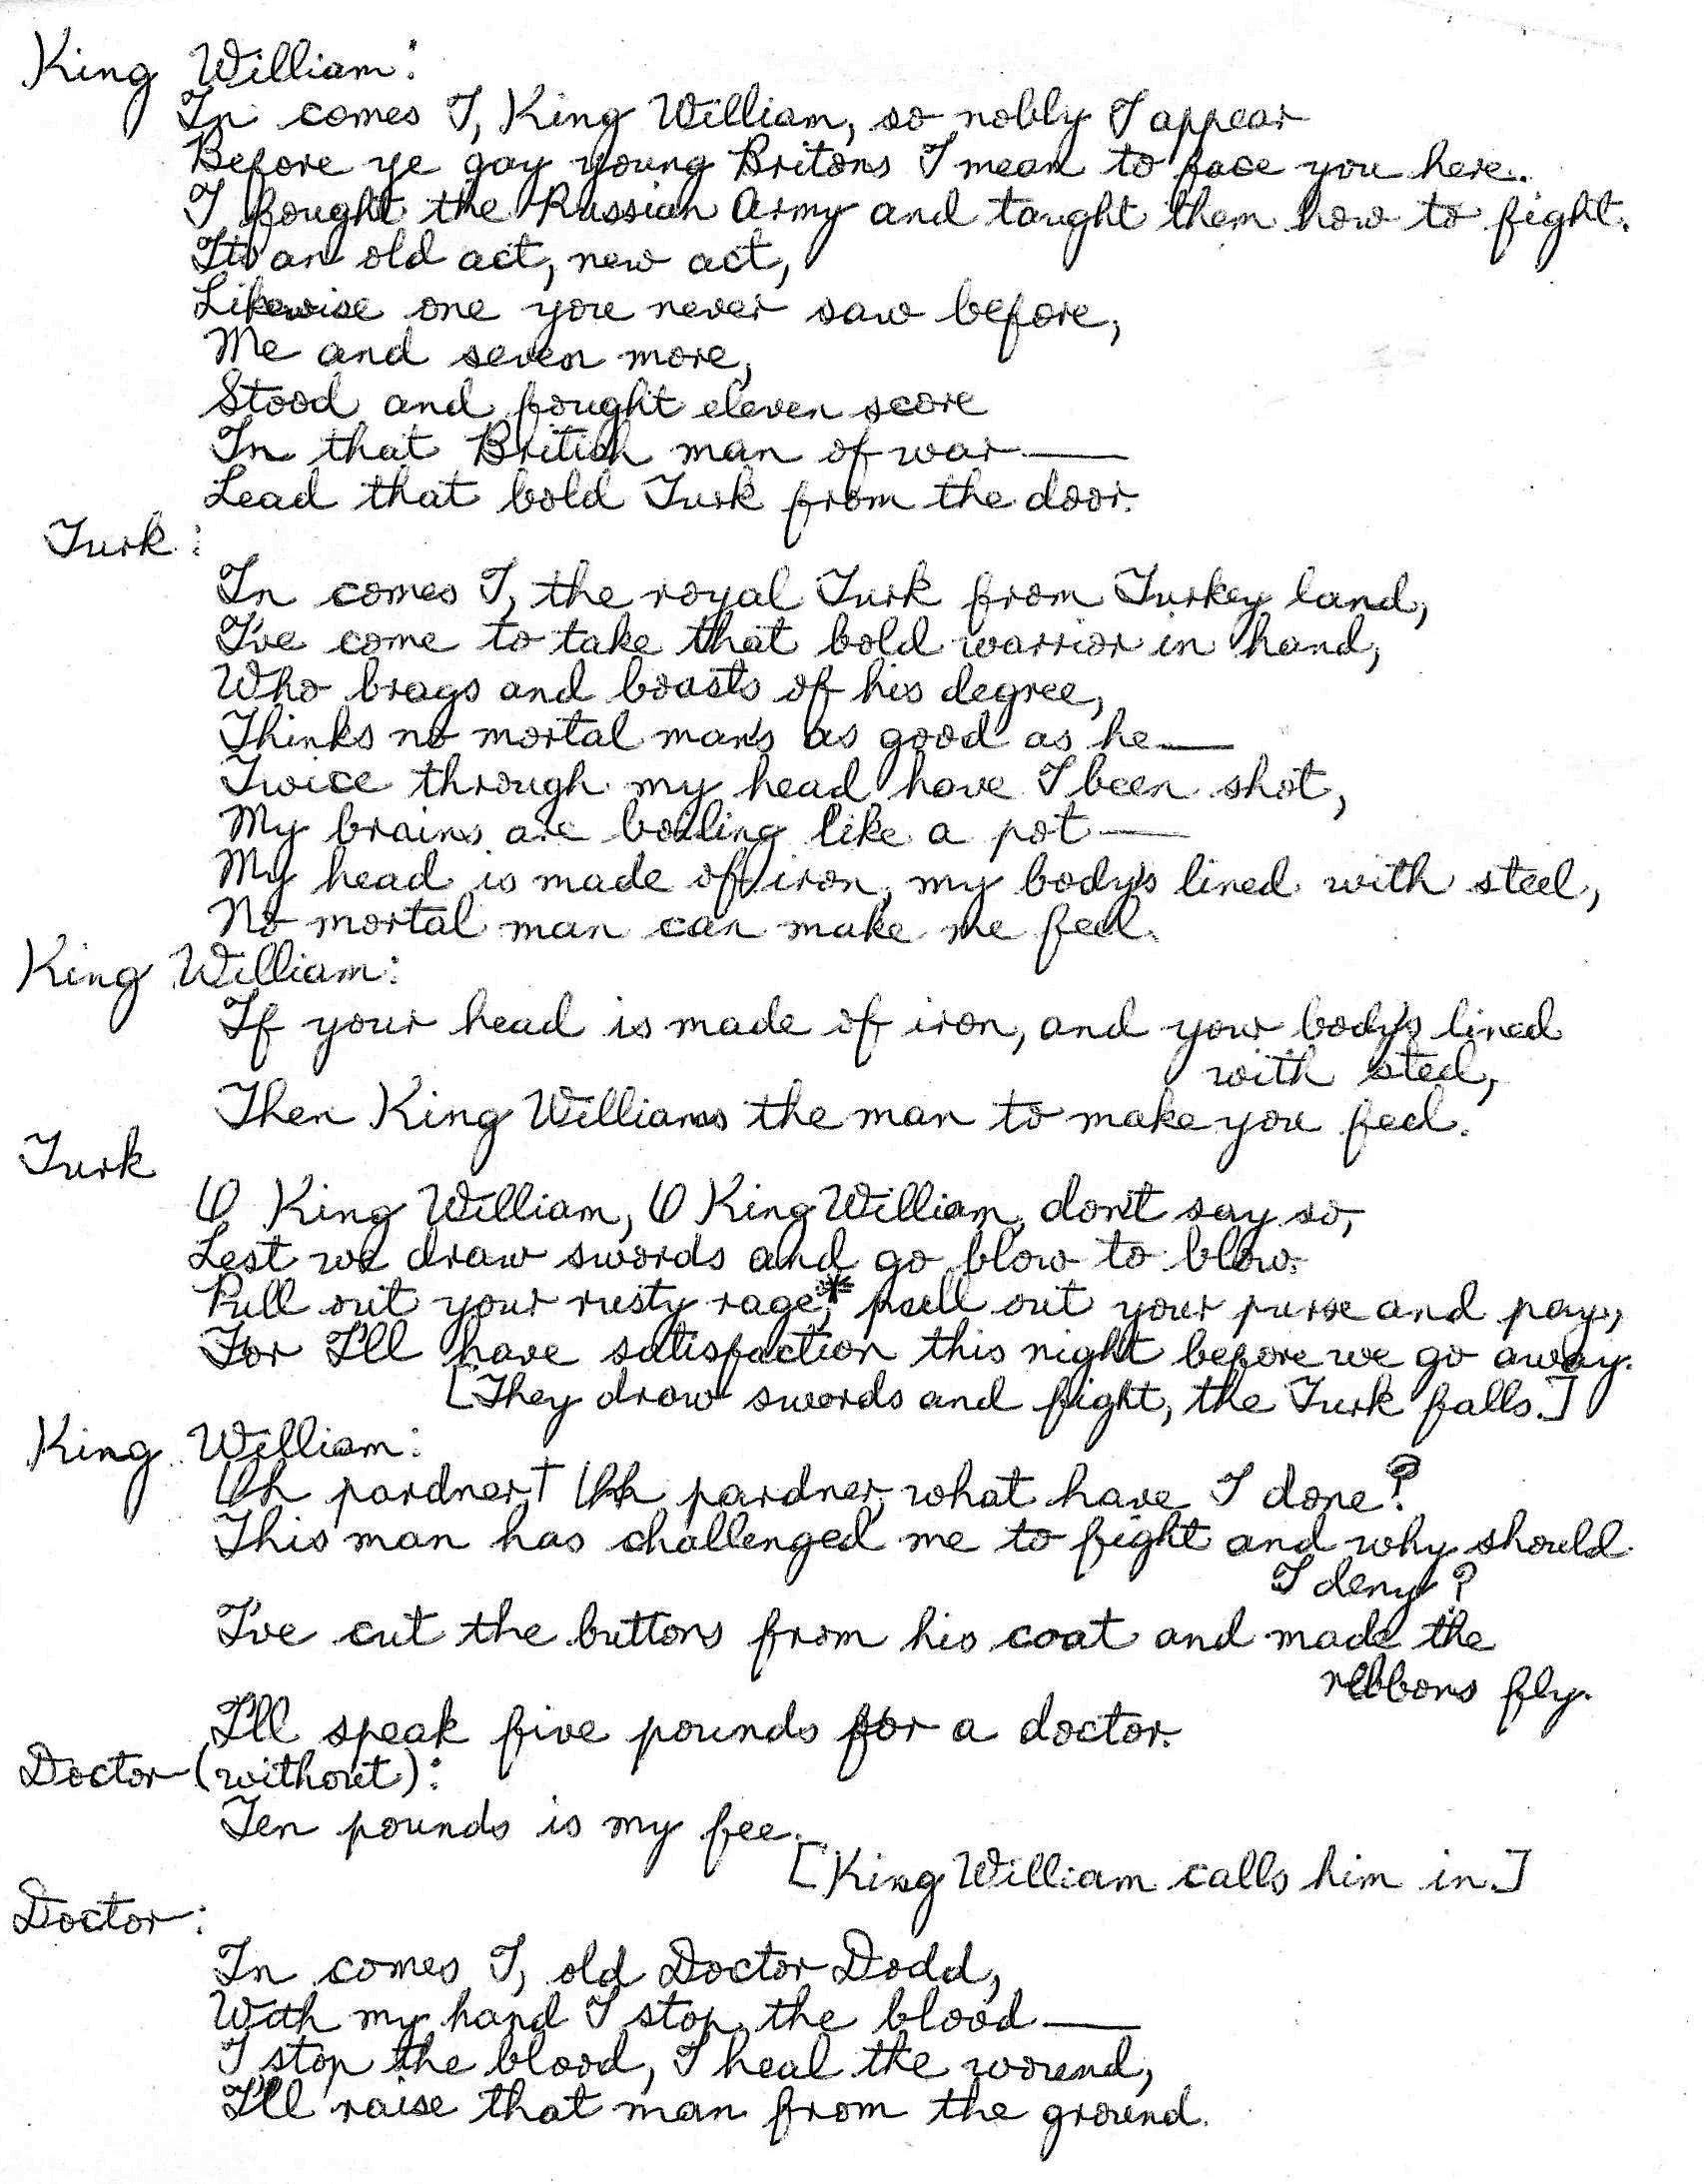 King William:
In comes I, King William, so nobly I appear
Before ye gay young Britons I mean to face you here.
I fought the Russian Army and taught them how to fight.
It's an old act, new act,
Likewise one you never saw before,
Me and seven more,
Stood and fought eleven score
In that British man of war —
Lead that bold Turk from the door.
Turk:
In comes I, the royal Turk from Turkey land,
I've come to take that bold warrior in hand,
Who brags and boasts of his degree,
Thinks no mortal man's as good as he —
Twice through my head have I been shot,
My brains are boiling like a pot —
My head is made of iron, my body's lined with steel,
No mortal man can make me feel.
King William:
If your head is made of iron, and your body's lined
with steel,
Then King William's the man to make you feel.
Turk
O King William, O King William, don't say so,
Lest we draw swords and go blow to blow.
Pull out your rusty rage,* pull out your purse and pay,
For I'll have satisfaction this night before we go away.
[They draw swords and fight, the Turk falls.]
King William:
Oh pardner† Oh pardner, what have I done?
This man has challenged me to fight and why should
I deny?
I've cut the buttons from his coat and made the
ribbons fly.
I'll speak five pounds for a doctor.
Doctor (without):
Ten pounds is my fee.
[King William calls him in.]
Doctor:
In comes I, old Doctor Dodd,
With my hand I stop the blood —
I stop the blood, I heal the wound,
I'll raise that man from the ground.